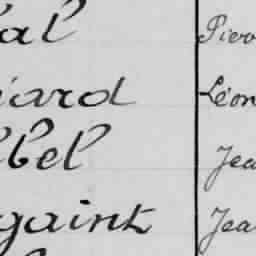 al Pierr
iard Léon
bel Jea
gaint Jea